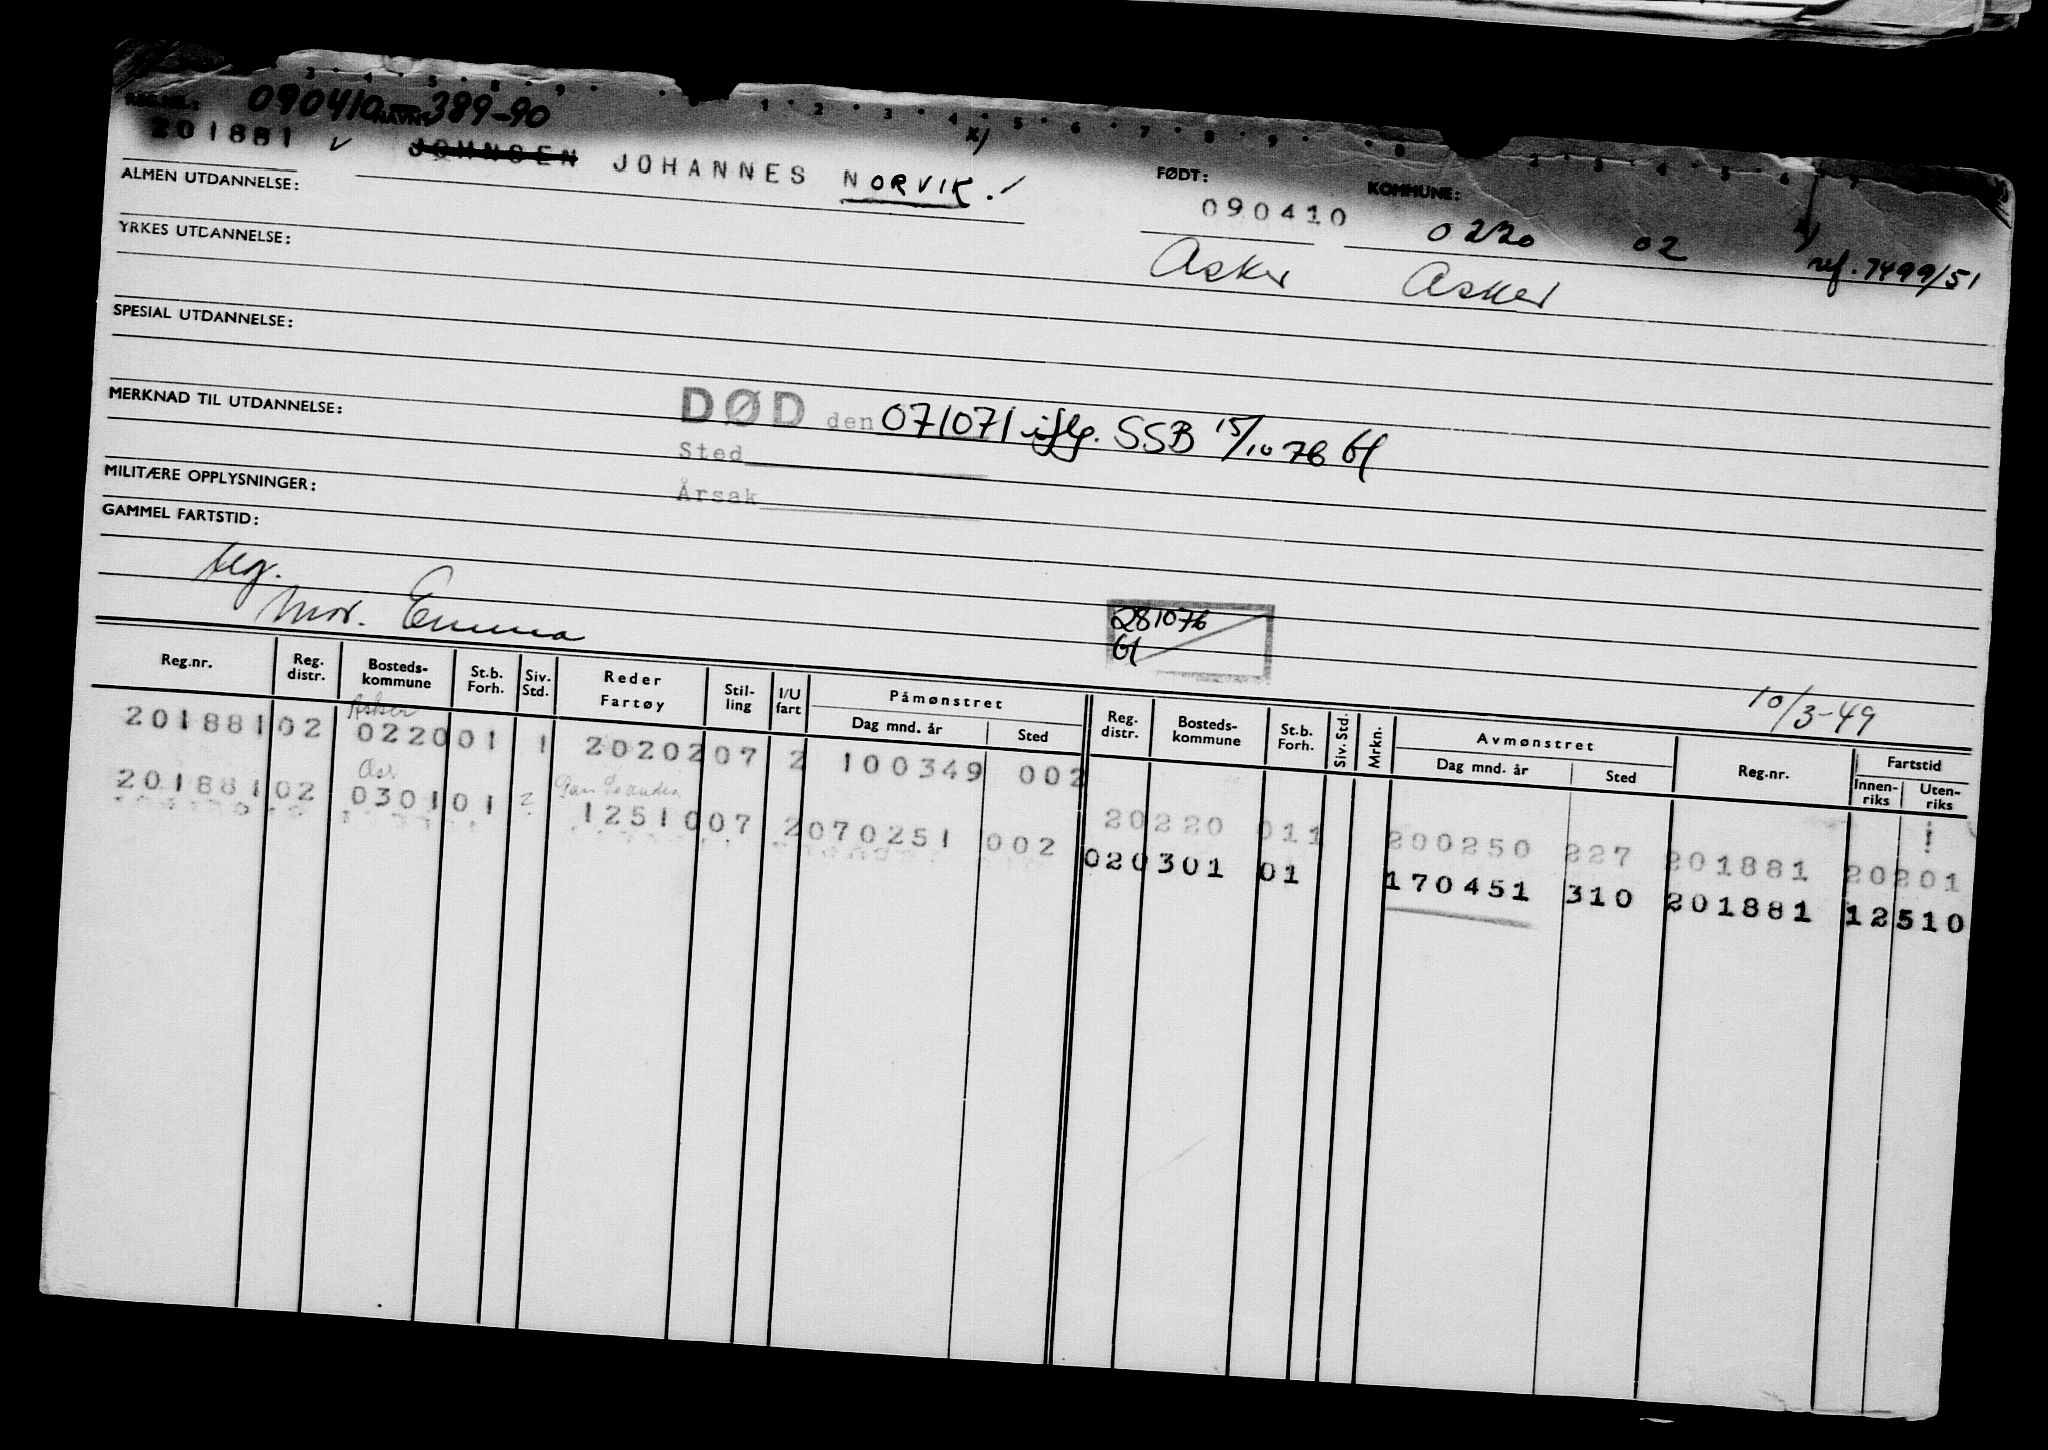 REG.NR.: 090410 NAVN: 389-90
201881 ✓ JOHNSEN JOHANNES NORVIK. x)
FØDT: KOMMUNE:
090410 0220 02 x)
ref. 7499/51
Asker Asker
ALMEN UTDANNELSE:
YRKES UTDANNELSE:
SPESIAL UTDANNELSE:
MERKNAD TIL UTDANNELSE:
DØD den 071071 iflg. SSB 15/10 76
Sted
Årsak
MILITÆRE OPPLYSNINGER:
GAMMEL FARTSTID:
Mor. Emma
281076
10/3-49
Reg.nr. Reg. distr. Bosteds-kommune St.b. Forh. Siv. Std. Reder Fartøy Stil-ling I/U fart Påmønstret Dag mnd. år Sted Reg. distr. Bosteds-kommune St.b. Forh. Siv. Std. Mrkn. Avmønstret Dag mnd. år Sted Reg.nr. Fartstid Innen-riks Uten-riks
Asker
201881 02 0220 01 1 20202 07 2 100349 002
20220 011 200250 227 201881 20201
201881 02 0301 01 2 12510 07 2 070251 002
02 0301 01 170451 310 201881 12510